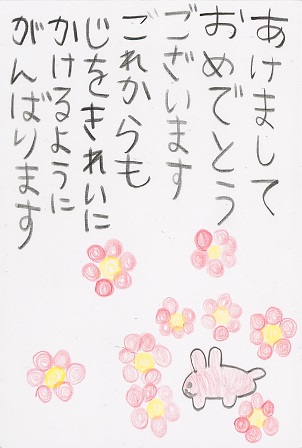 あけまして
おめでとう
ございます
ごれからも
じをきれいに
かけるように
がんばります